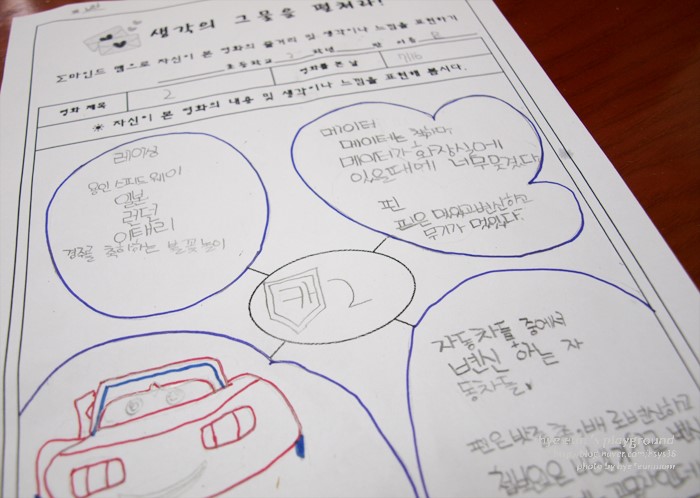 생각의 그물을 펼쳐라!
마인드 맵으로 자신이 본 영화의 줄거리 및 생각이나 느낌을 표현하기
초등학교 2 학년 반 이름
영화 제목 2 영화를 본 날 7/16
※ 자신이 본 영화의 내용 및 생각이나 느낌을 표현해 봅시다.
레이싱
용인 스피드웨이
일본
런던
이태리
경주를 축하하는 불꽃놀이
메이터
메이터는
메이터가 화장실에
있을때에 너무웃겼다
핀
핀은 멋있고변신하고
무기가 멋있다.
카 2
자동차들 중에서
변신 하는 자
동차들
핀은
hye-eun's playground
photo by hye-eun mam